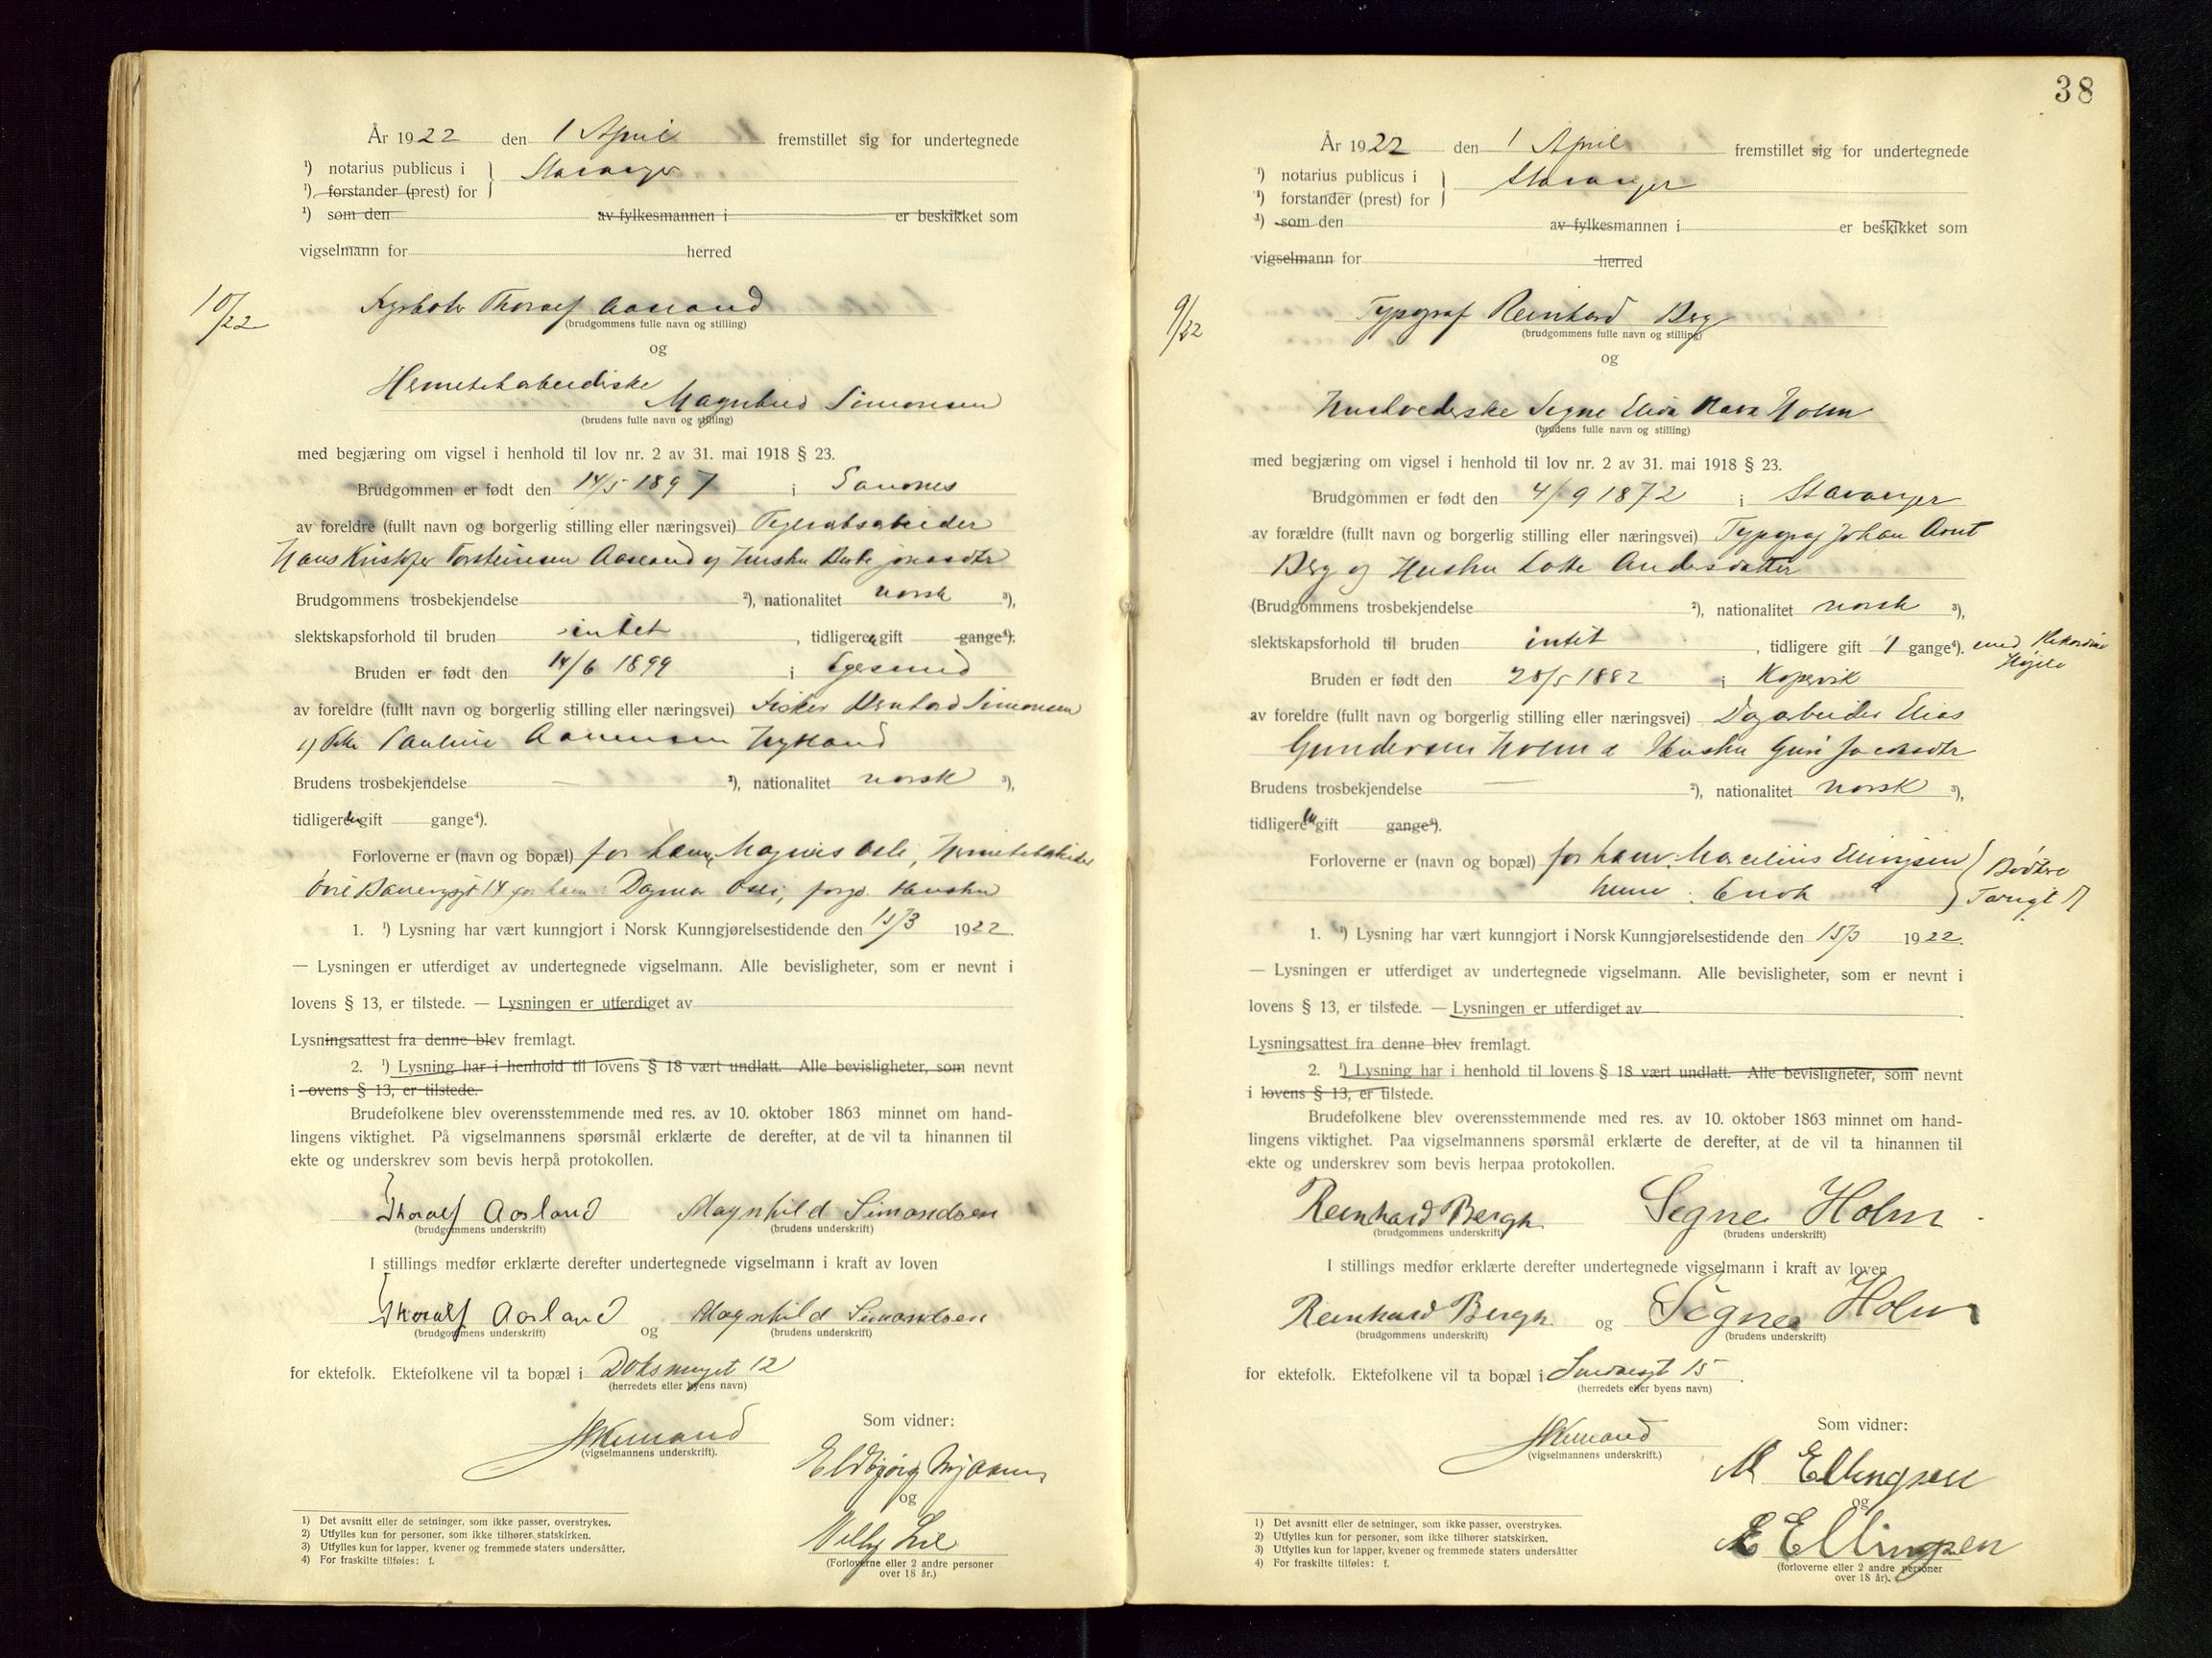 År 1922 den 1 April fremstillet sig for undertegnede
¹) notarius publicus i } Stavanger
¹) forstander (prest) for
¹) som den av fylkesmannen i er beskikket som
vigselmann for herred
10/22
Thoralf Aasland
(brudgommens fulle navn og stilling)
og
Hermetikarbeiderske Magnhild Simonsen
(brudens fulle navn og stilling)
med begjæring om vigsel i henhold til lov nr. 2 av 31. mai 1918 § 23.
Brudgommen er født den 14/5 1897 i Sandnes
av foreldre (fullt navn og borgerlig stilling eller næringsvei)
Hans Torsteinsen Aasland og Hustru
Brudgommens trosbekjendelse ²), nationalitet norsk ³),
slektskapsforhold til bruden intet, tidligere gift gange⁴).
Bruden er født den 14/6 1899 i Egersund
av foreldre (fullt navn og borgerlig stilling eller næringsvei) Fisker Simonsen
Pauline
Brudens trosbekjendelse — ²), nationalitet norsk ³),
tidligere gift gange⁴).
Forloverne er (navn og bopæl) for ham, Magnus Osli,
14 Dagmar Osli, Hustru
1. ¹) Lysning har vært kunngjort i Norsk Kunngjørelsestidende den 15/3 1922.
— Lysningen er utferdiget av undertegnede vigselmann. Alle bevisligheter, som er nevnt i
lovens § 13, er tilstede. — Lysningen er utferdiget av
Lysningsattest fra denne blev fremlagt.
2. ¹) Lysning har i henhold til lovens § 18 vært undlatt. Alle bevisligheter, som nevnt
i ovens § 13, er tilstede.
Brudefolkene blev overensstemmende med res. av 10. oktober 1863 minnet om hand-
lingens viktighet. På vigselmannens spørsmål erklærte de derefter, at de vil ta hinannen til
ekte og underskrev som bevis herpå protokollen.
Thoralf Aasland Magnhild Simondsen
(brudgommens underskrift) (brudens underskrift)
I stillings medfør erklærte derefter undertegnede vigselmann i kraft av loven
Thoralf Aasland og Magnhild Simondsen
(brudgommens underskrift) (brudens underskrift)
for ektefolk. Ektefolkene vil ta bopæl i 12
(herredets eller byens navn)
Som vidner:
(vigselmannens underskrift).
Eldbjørg
og
Lie
(Forloverne eller 2 andre personer
over 18 år.)
1) Det avsnitt eller de setninger, som ikke passer, overstrykes.
2) Utfylles kun for personer, som ikke tilhører statskirken.
3) Utfylles kun for lapper, kvener og fremmede staters undersåtter.
4) For fraskilte tilføies: f.
38
År 1922 den 1 April fremstillet sig for undertegnede
¹) notarius publicus i } Stavanger
¹) forstander (prest) for
¹) som den av fylkesmannen i er beskikket som
vigselmann for herred
9/22
Typograf Reinhard Berg
(brudgommens fulle navn og stilling)
og
Segne Holm
(brudens fulle navn og stilling)
med begjæring om vigsel i henhold til lov nr. 2 av 31. mai 1918 § 23.
Brudgommen er født den 4/9 1872 i Stavanger
av forældre (fullt navn og borgerlig stilling eller næringsvei) Typograf Johan Arnt
Berg og Hustru Lotte Andersdatter
(Brudgommens trosbekjendelse ²), nationalitet norsk ³),
slektskapsforhold til bruden intet, tidligere gift 1 gange⁴). med
Bruden er født den 28/5 1882 i Kopervik
av foreldre (fullt navn og borgerlig stilling eller næringsvei) Dagarbeider Elias
Gundersen Holm & Hustru Guri
Brudens trosbekjendelse — ²), nationalitet norsk ³),
tidligere gift gange⁴).
Forloverne er (navn og bopæl) for ham: Marcelius Ellingsen } Bødkere
henne: Enok
1. ¹) Lysning har vært kunngjort i Norsk Kunngjørelsestidende den 15/3 1922.
— Lysningen er utferdiget av undertegnede vigselmann. Alle bevisligheter, som er nevnt i
lovens § 13, er tilstede. — Lysningen er utferdiget av
Lysningsattest fra denne blev fremlagt.
2. ¹) Lysning har i henhold til lovens § 18 vært undlatt. Alle bevisligheter, som nevnt
i lovens § 13, er tilstede.
Brudefolkene blev overensstemmende med res. av 10. oktober 1863 minnet om hand-
lingens viktighet. Paa vigselmannens spørsmål erklærte de derefter, at de vil ta hinannen til
ekte og underskrev som bevis herpaa protokollen.
Reinhard Bergh Segne Holm
(brudgommens underskrift) (brudens underskrift)
I stillings medfør erklærte derefter undertegnede vigselmann i kraft av loven
Reinhard Bergh og Segne Holm
(brudgommens underskrift) (brudens underskrift)
for ektefolk. Ektefolkene vil ta bopæl i 15
(herredets eller byens navn)
Som vidner:
(vigselmannens underskrift.)
M Ellingsen
og
E Ellingsen
(forloverne eller 2 andre personer
over 18 år).
1) Det avsnitt eller de setninger, som ikke passer, overstrykes.
2) Utfylles kun for personer, som ikke tilhører statskirken.
3) Utfylles kun for lapper, kvener og fremmede staters undersåtter
4) For fraskilte tilføies: f.